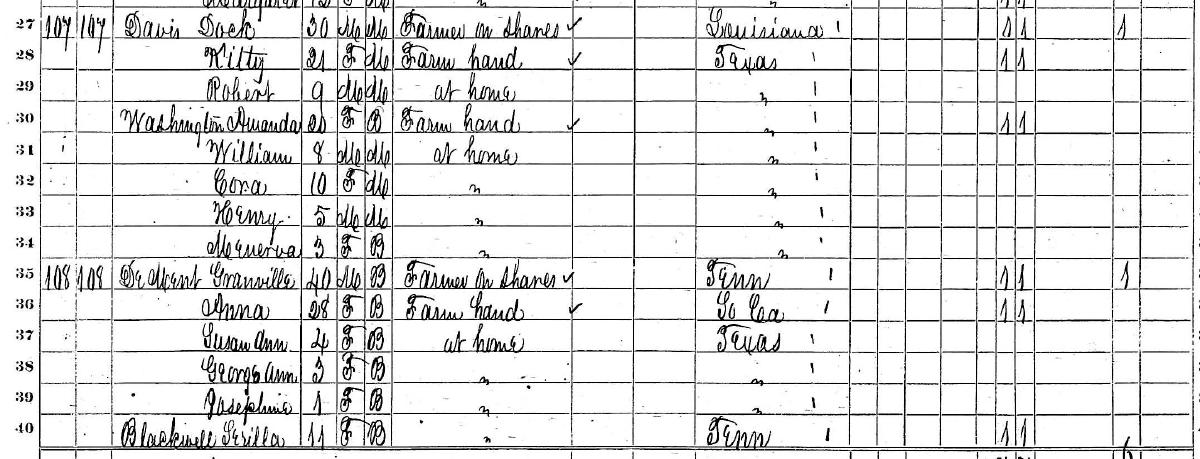 27 107 107 Davis Dock 30 M M Farmer on shares ✓ Louisiana 1 1 1 1
28 Kitty 21 F M Farm hand ✓ Texas 1 1 1
29 Robert 9 M M at home " 1
30 Washington Amanda 20 F B Farm hand ✓ " 1 1 1
31 William 8 M M at home " 1
32 Cora 10 F M " " 1
33 Henry 5 M M " " 1
34 Menerva 3 F B " " 1
35 108 108 De Ment Granville 40 M B Farmer on shares ✓ Tenn 1 1 1 1
36 Anna 28 F B Farm hand ✓ So Ca 1 1 1
37 Susan Ann 4 F B at home Texas 1
38 George Ann 3 F B " " 1
39 Josephine 1 F B " " 1
40 Blackwell 11 F B " Tenn 1
6